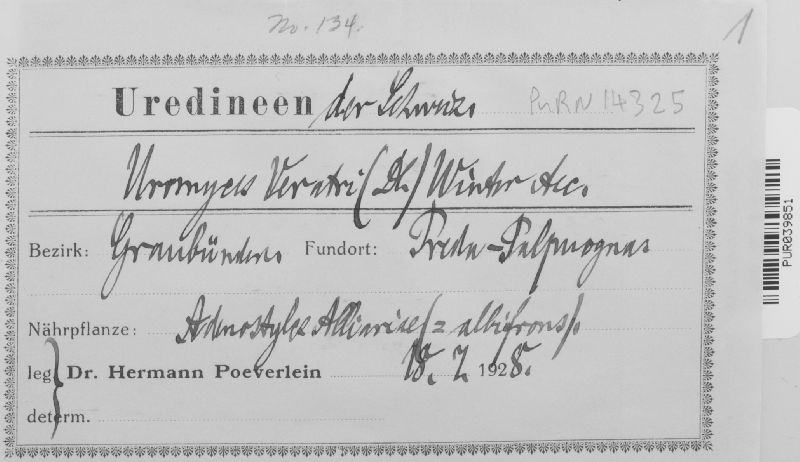 No. 134.
1
Uredineen der Schweiz.
PURN 14325
Uromyces Veratri (DC.) Winter Aec.
Bezirk: Graubünden. Fundort: Preda-Palpuogna.
Nährpflanze: Adenostyles Alliariae (= albifrons).
leg. Dr. Hermann Poeverlein 18. 7. 1928.
determ.
PUR039851